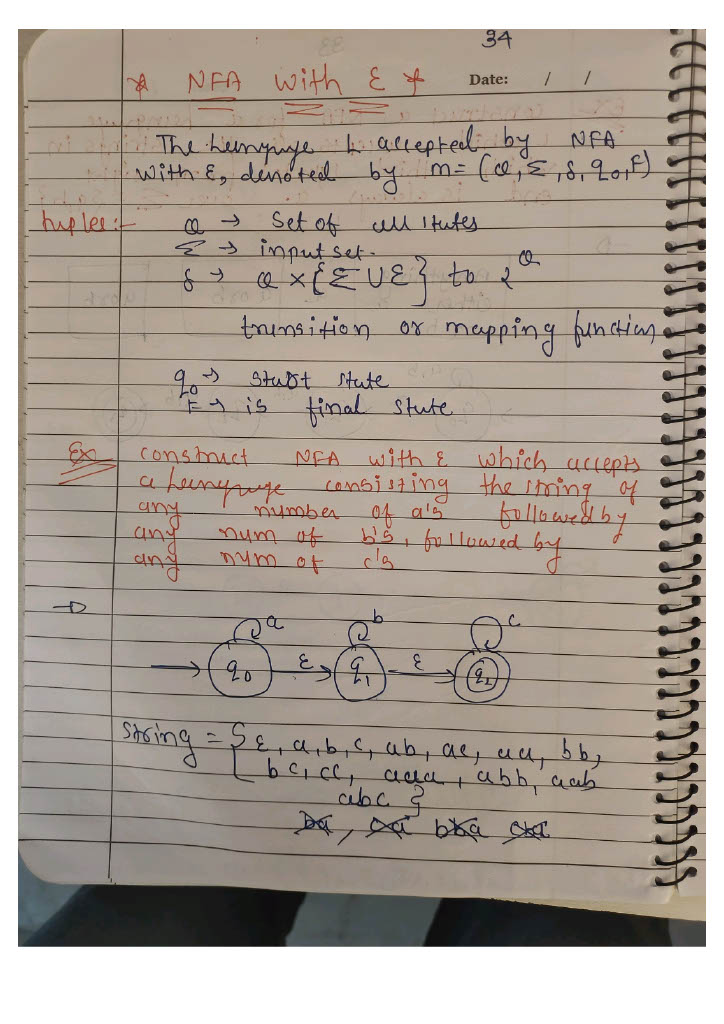 34
* NFA with ε *
Date: / /
The Language L accepted by NFA
with ε, denoted by m = (Q, Σ, δ, q0, F)
tuples :- Q → Set of all states
Σ → input set.
δ → Q × {Σ ∪ ε} to 2^Q
transition or mapping function
q0 → start state
F → is final state
Ex construct NFA with ε which accepts
a Language consisting the string of
any number of a's followed by
any num of b's, followed by
any num of c's
→
a b c
q0 ε q1 ε q2
string = { ε, a, b, c, ab, ac, aa, bb,
bc, cc, aaa, abb, aab
abc }
ba, ca bba